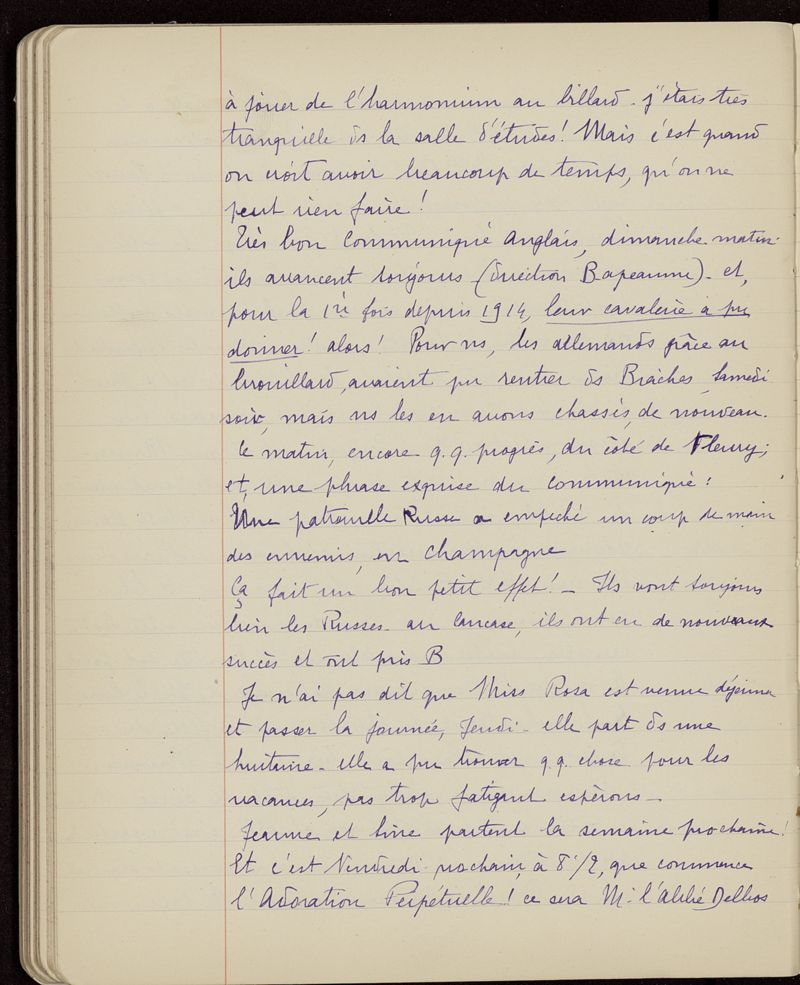 à jouer de l'harmonium au billard. j'étais très
tranquille ds la salle d'études! Mais c'est quand
on croit avoir beaucoup de temps, qu'on ne
peut rien faire!
Très bon Communiqué Anglais, dimanche matin.
ils avancent toujours (direction Bapeaume). et,
pour la 1re fois depuis 1914, leur cavalerie a pu
donner! alors! Pour ns, les allemands grâce au
brouillard, avaient pu rentrer ds Biaches, Samedi
soir, mais ns les en avons chassés, de nouveau.
Ce matin, encore q.q. progrès, du côté de Fleury;
et, une phrase exquise du communiqué:
Une patrouille Russe a empêché un coup de main
des ennemis, en Champagne
Ça fait un bon petit effet! _ Ils vont toujours
bien les Russes. au Caucase, ils ont eu de nouveaux
succès et ont pris B
Je n'ai pas dit que Miss Rosa est venue déjeuner
et passer la journée, Jeudi. elle part ds une
huitaine. elle a pu trouver q.q. chose pour les
vacances, pas trop fatigant espérons _
Jeanne et Line partent la semaine prochaine!
Et c'est Vendredi prochain, à 8 1/2, que commence
l'Adoration Perpétuelle! ce sera Mr l'abbé Delbos